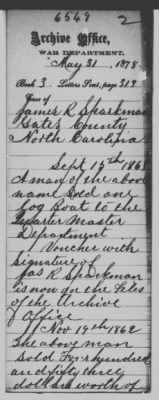 6549 2
Archive Office,
WAR DEPARTMENT,
May 31, 1878
Book 3. Letters Sent, page 313
Case of
James R. Sparkman
Gates County
North Carolina
Sept 15th 1863
A man of the above
name sold one
Log Boat to the
Quarter Master
Department
Voucher with
signature of
Jas R. Sparkman
is now on the Files
of the Archive
Office
Nov 19th 1862
The above man
sold Four hundred
and fifty three
dollars worth of